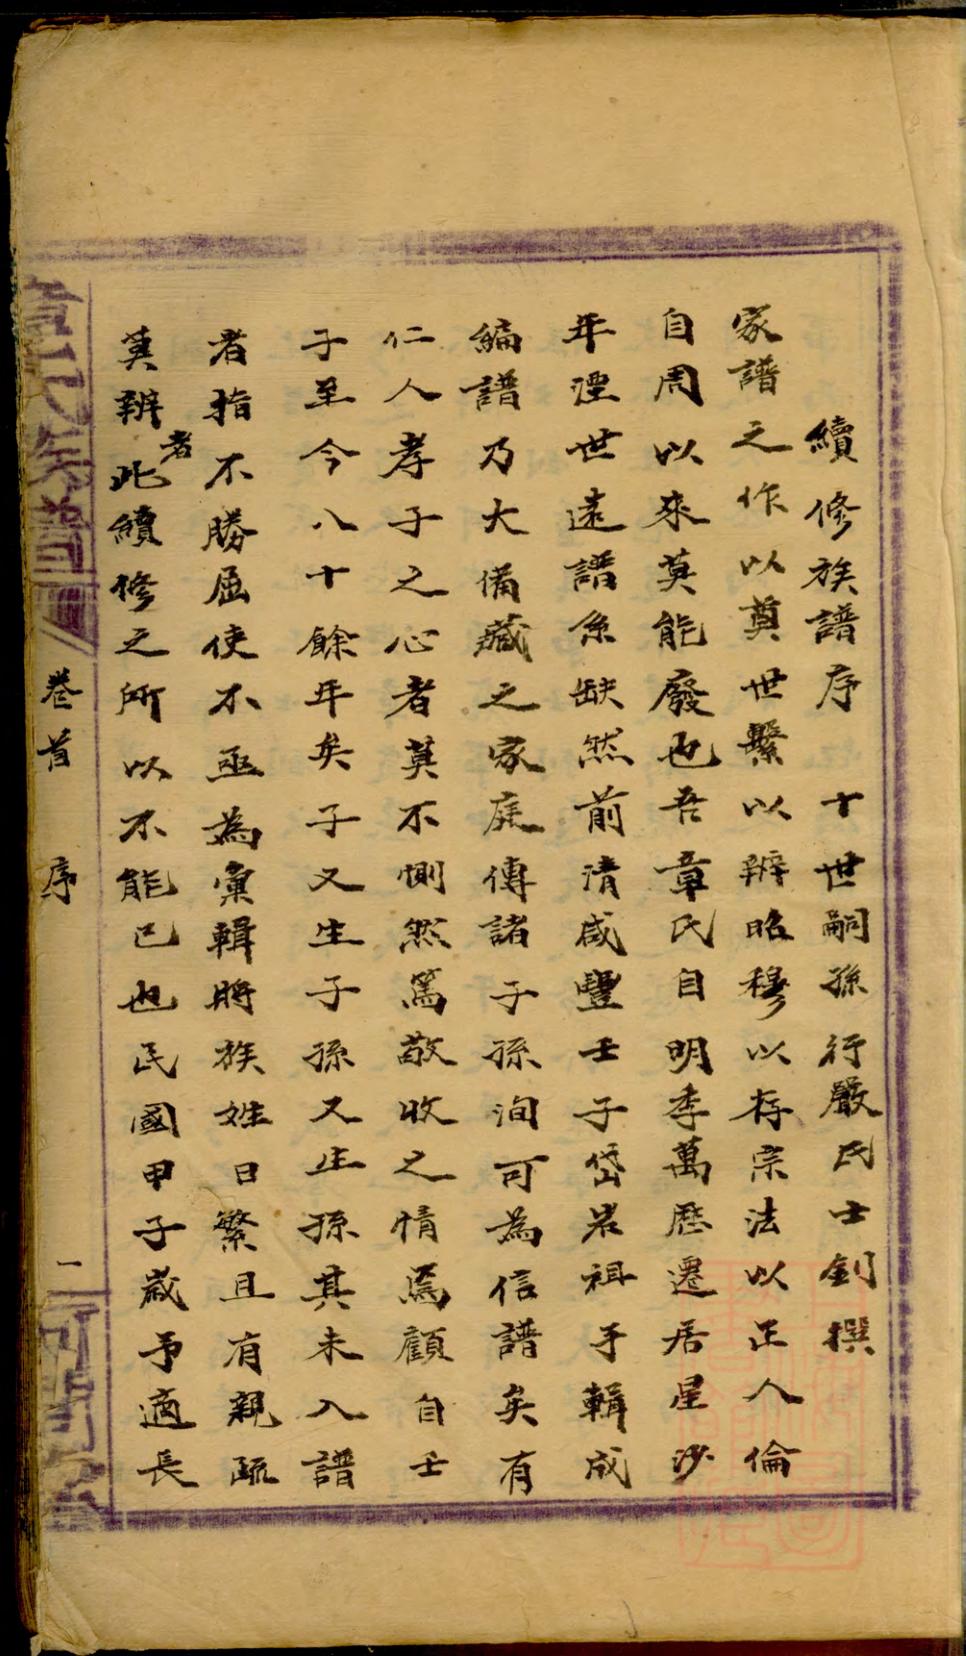 續修族譜序　十世嗣孫行嚴民士釗撰
家譜之作以奠世繫以辨昭穆以存宗法以正人倫
自周以來莫能廢也吾章氏自明季萬歷遷居星沙
年湮世遠譜系缺然前清咸豐壬子岱岩祖手輯成
編譜乃大備藏之家庭傳諸子孫洵可為信譜矣有
仁人孝子之心者莫不惻然篤敬收之情焉顧自壬
子至今八十餘年矣子又生子孫又生孫其未入譜
者指不勝屈使不亟為彙輯將族姓日繁且有親疏
莫辨者此續修之所以不能已也民國甲子歲予適長
章氏族譜　卷首　序　一